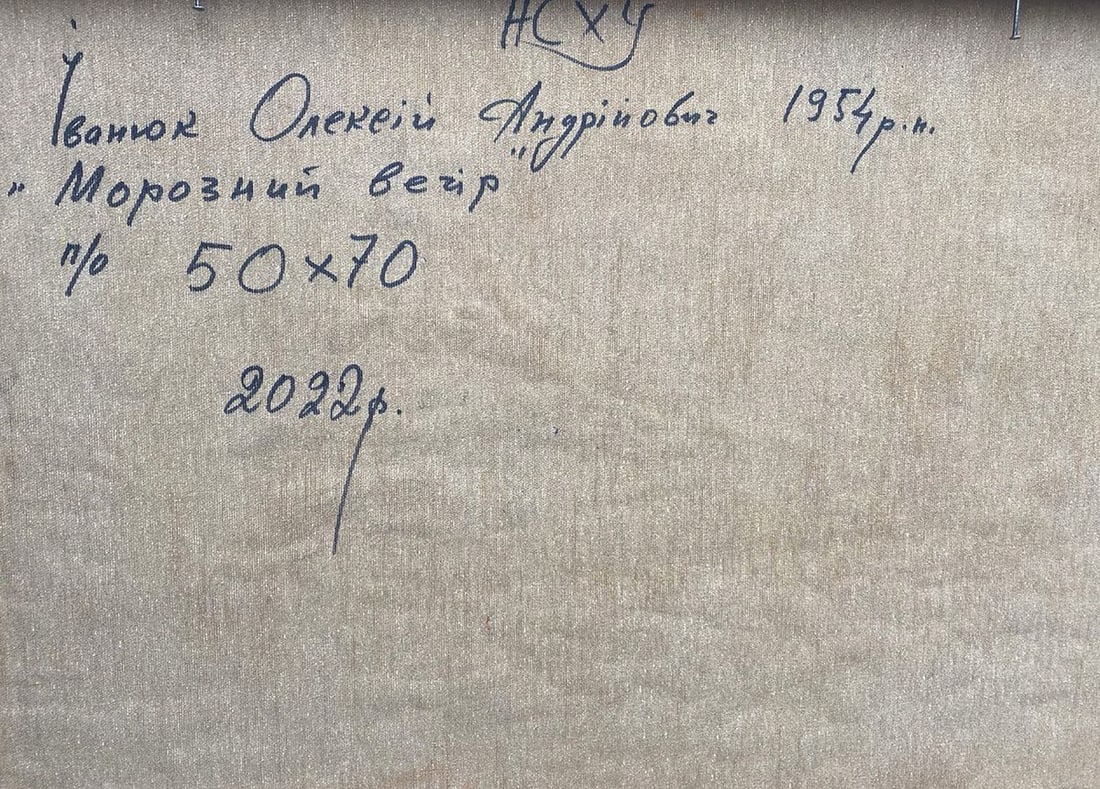 НСХУ
Іванюк Олексій Андрійович 1954р.н.
„Морозний вечір"
п/о 50х70
2022р.